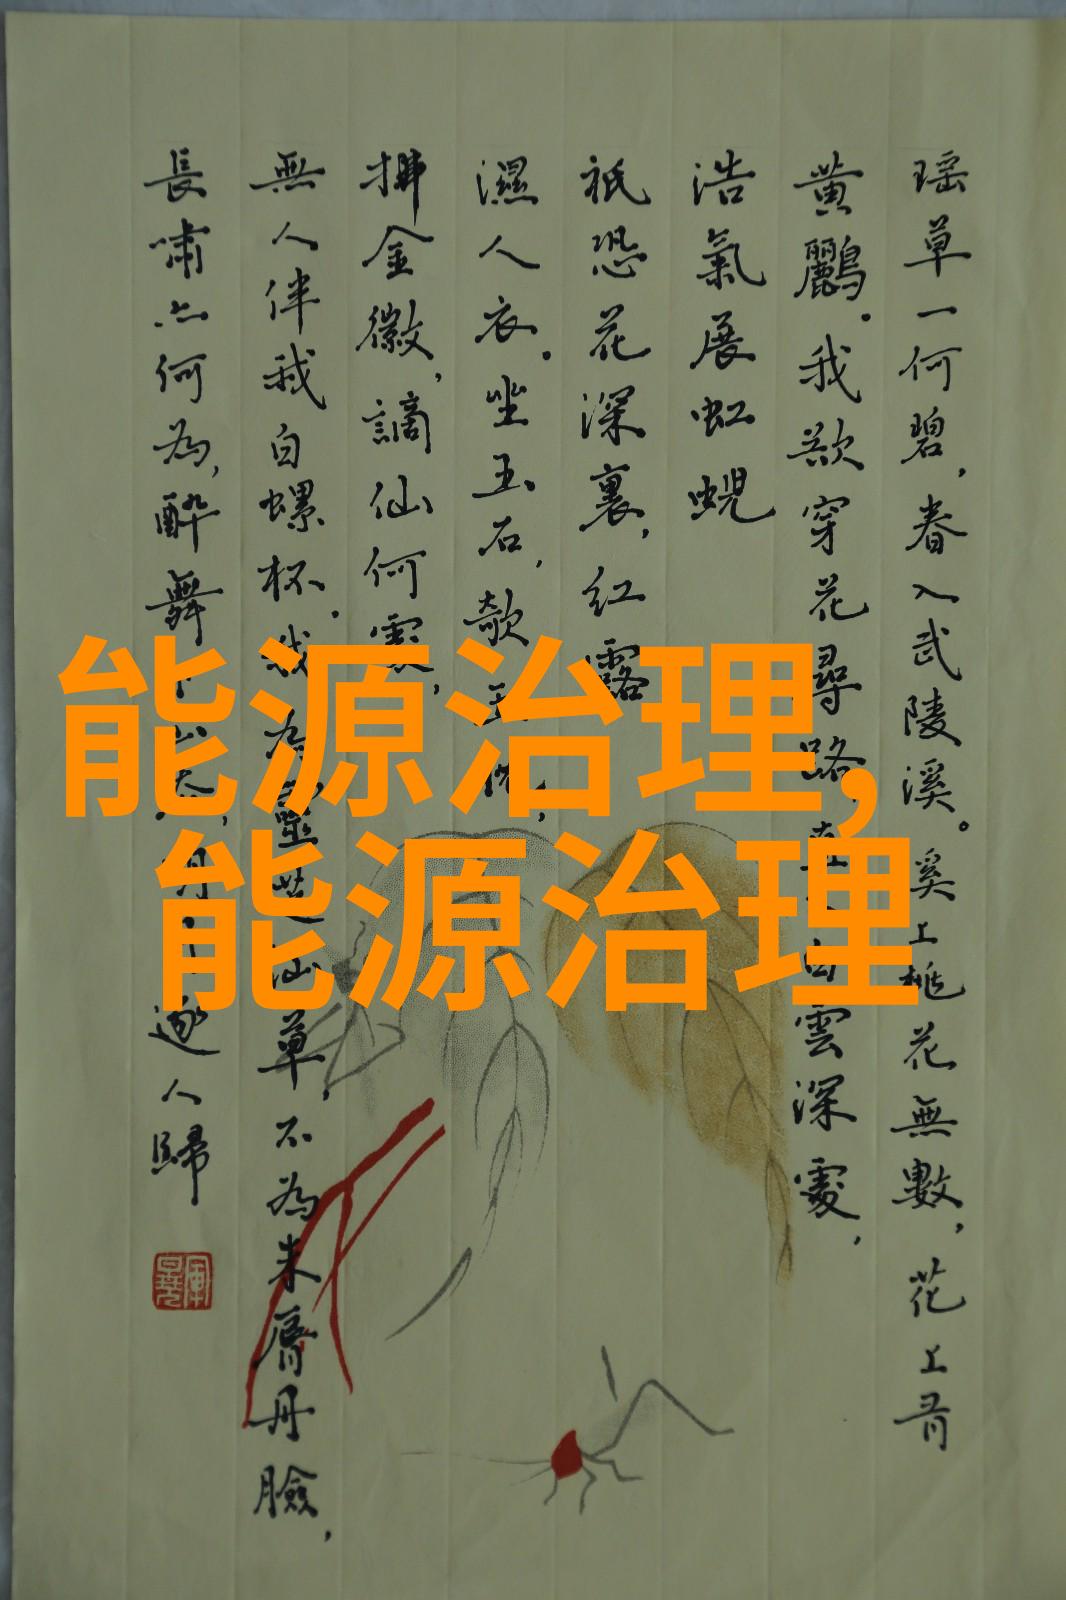 瑶草一何碧，春入武陵溪。溪上桃花無數，花上有
黄鸝。我欲穿花尋路，直入白雲深處，
浩氣展虹蜺
祇恐花深裏，红露
濕人衣。坐玉石，欹玉枕，
拂金徽，謫仙何處，
無人伴我白螺杯。我為靈芝仙草，不為朱唇丹臉，
長嘯亦何為，醉舞下山去，明月逐人歸
能源治理,
能源治理